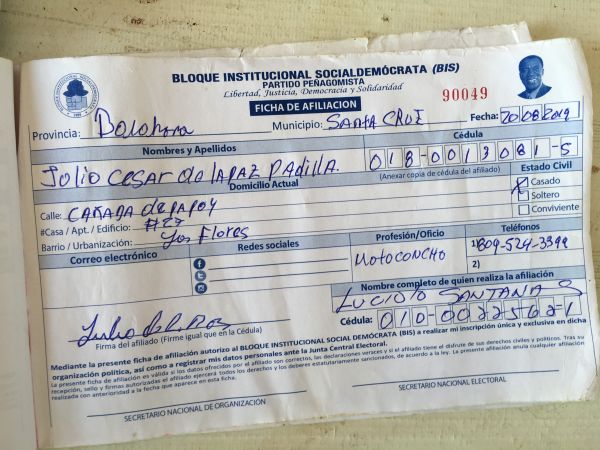 BLOQUE INSTITUCIONAL SOCIALDEMÓCRATA (BIS)
PARTIDO PEÑAGOMISTA
Libertad, Justicia, Democracia y Solidaridad
FICHA DE AFILIACION
90049
Provincia: Barahona Municipio: SANTA CRUZ Fecha: 20/08/2019
Nombres y Apellidos Cédula
Julio Cesar de la paz Padilla. 018-0013081-5
(Anexar copia de cédula del afiliado)
Domicilio Actual Estado Civil
Calle: CAÑADA de papoy
Casado
#Casa / Apt. / Edificio: #27
Soltero
Barrio / Urbanización: Las Flores
Conviviente
Correo electrónico Redes sociales Profesión/Oficio Teléfonos
MOTOCONCHO
1) 809-524-3399
2)
Nombre completo de quien realiza la afiliación
LUCIDIO SANTANA S
Cédula: 010-0022562-1
Firma del afiliado (Firme igual que en la Cédula)
Mediante la presente ficha de afiliación autorizo al BLOQUE INSTITUCIONAL SOCIALDEMÓCRATA (BIS) a realizar mi inscripción única y exclusiva en dicha
organización política, así como a registrar mis datos personales ante la Junta Central Electoral.
La presente ficha de afiliación es válida si los datos ofrecidos por el afiliado son correctos, las declaraciones veraces y si el afiliado tiene el disfrute de sus derechos civiles y políticos. Tras su
recepción, sello y firmas autorizadas el afiliado ejercerá todos los derechos y los deberes estatutariamente sancionados, de acuerdo a la ley. La presente afiliación anula cualquier afiliación
realizada con anterioridad a la fecha que aparece en esta ficha.
SECRETARIO NACIONAL DE ORGANIZACIÓN
SECRETARIO NACIONAL ELECTORAL